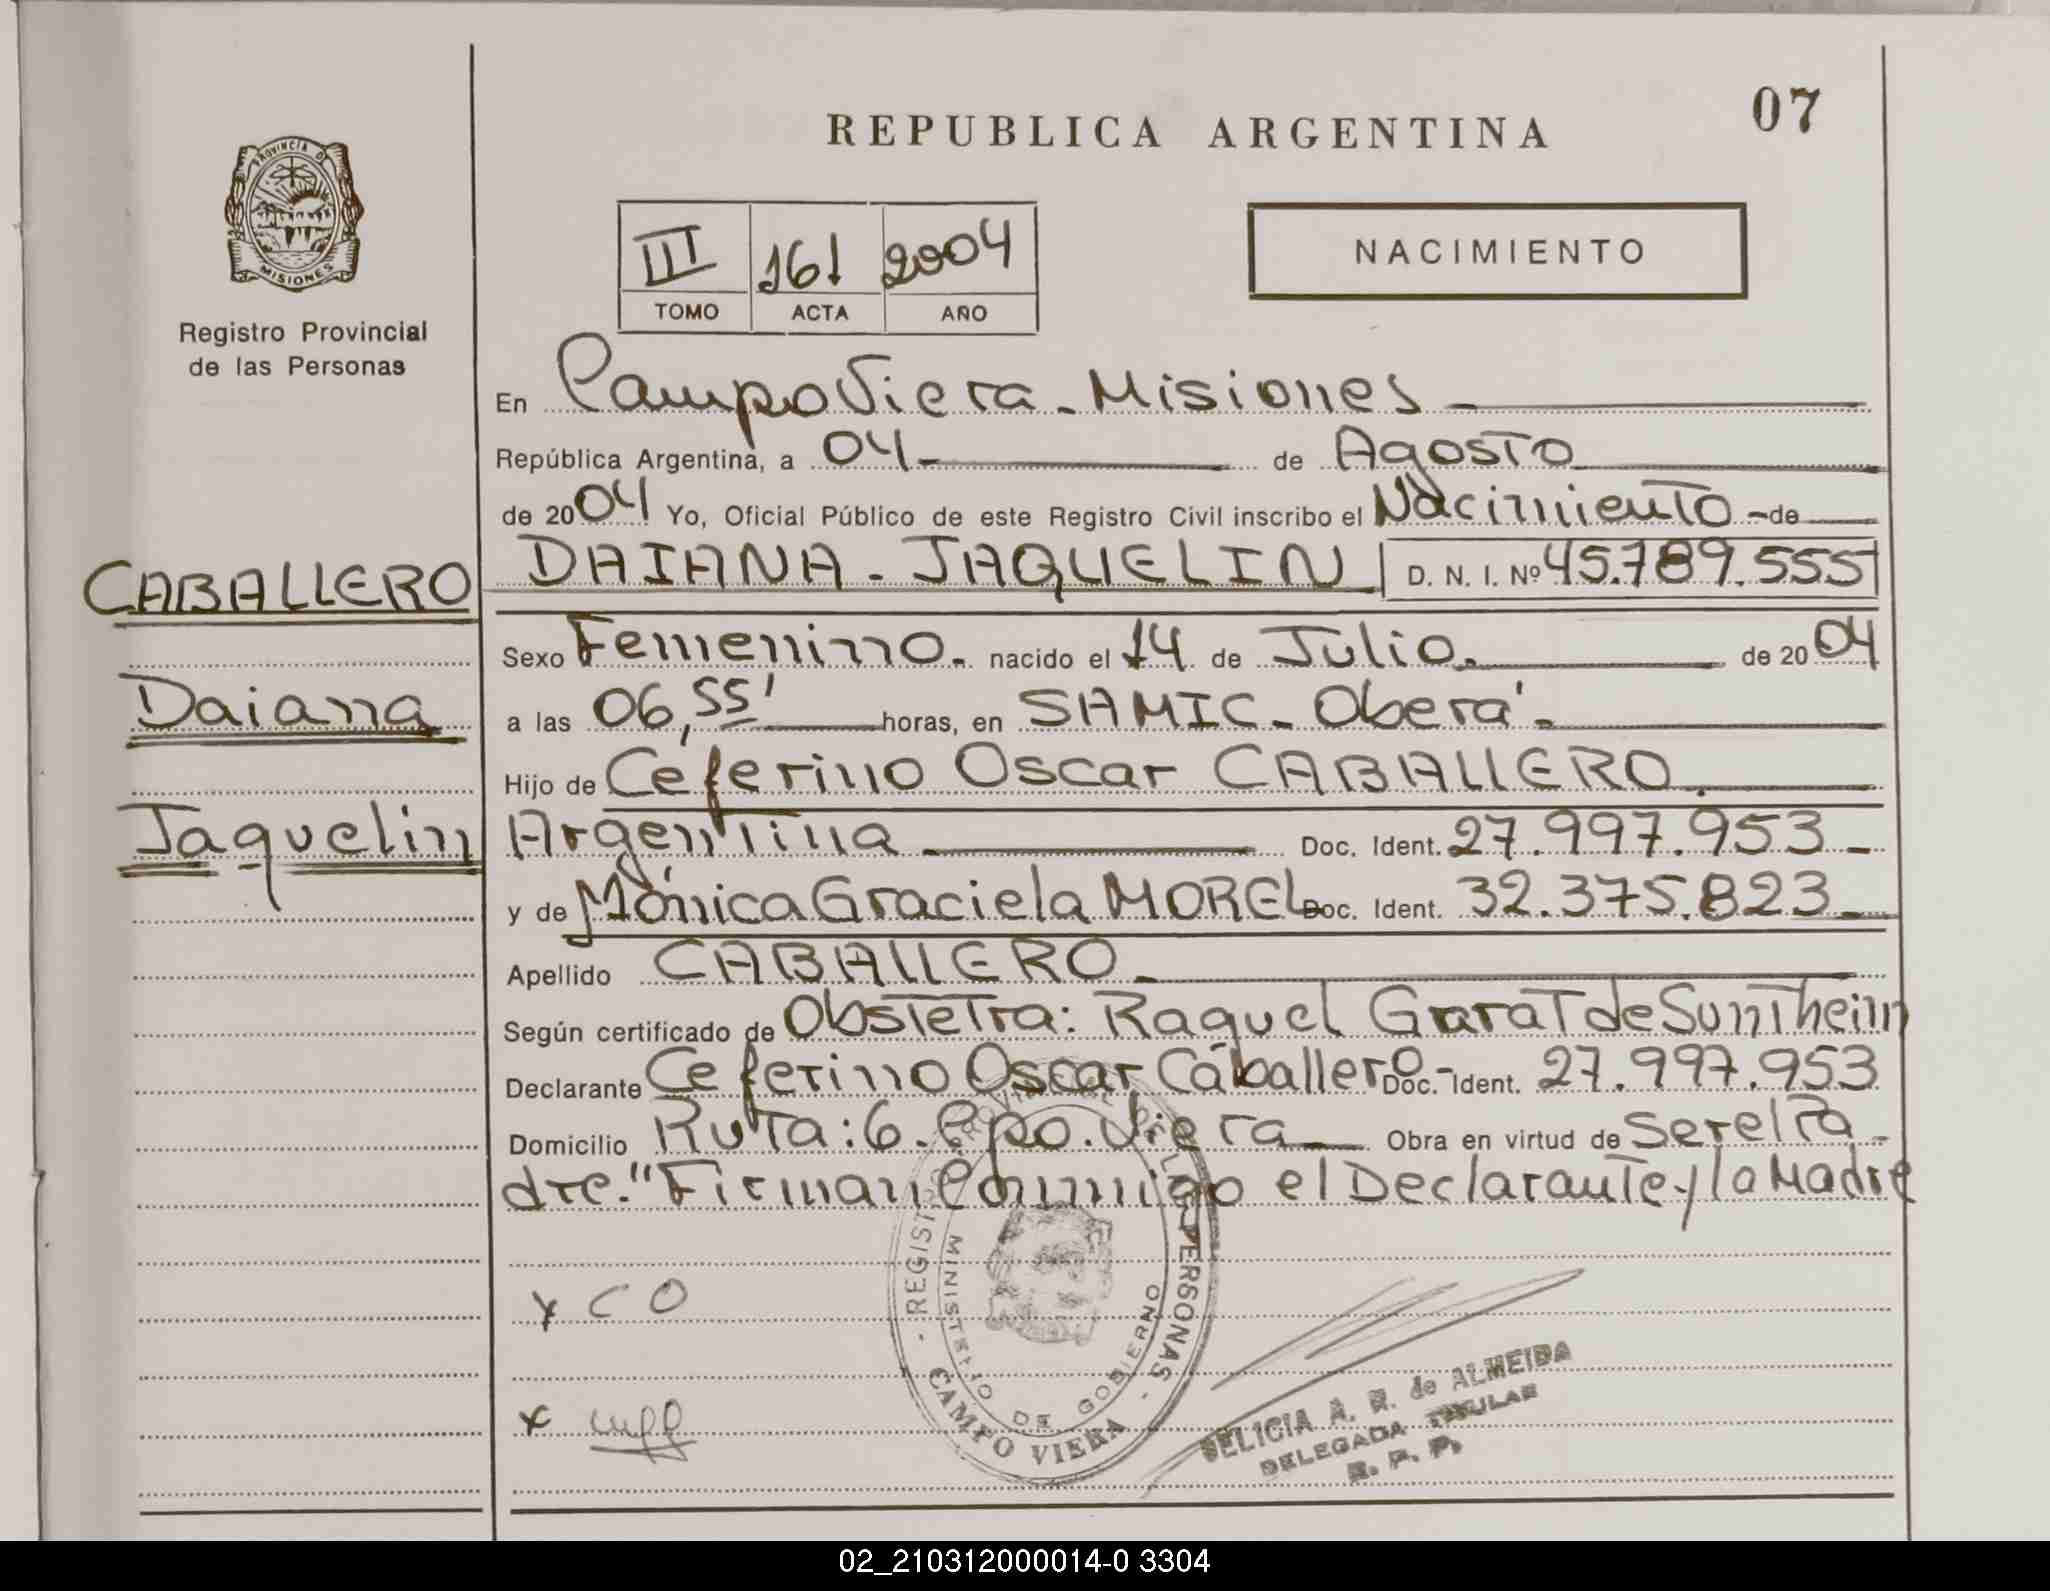 REPUBLICA ARGENTINA
07
PROVINCIA DE
MISIONES
Registro Provincial
de las Personas
III 161 2004
TOMO ACTA AÑO
NACIMIENTO
En Campo Viera - Misiones
República Argentina, a 04 de Agosto
de 2004 Yo, Oficial Público de este Registro Civil inscribo el Nacimiento - de
DAIANA - JAQUELIN D. N. I. Nº 45.789.555
CABALLERO
Daiana
Jaquelin
Sexo Femenino. nacido el 14 de Julio. de 2004
a las 06,55' horas, en SAMIC - Oberá.
Hijo de Ceferino Oscar CABALLERO.
Argentina Doc. Ident. 27.997.953
y de Mónica Graciela MOREL Doc. Ident. 32.375.823
Apellido CABALLERO
Según certificado de Obstetra: Raquel Garat de Suntheim
Declarante Ceferino Oscar Caballero - Doc. Ident. 27.997.953
Domicilio Ruta: 6. Cpo. Viera Obra en virtud de Ser el Pa
dre." Firman Conmigo el Declarante y la Madre
x C O
x
REGISTRO PROVINCIAL DE LAS PERSONAS
MINISTERIO DE GOBIERNO
- CAMPO VIERA -
DELICIA A. R. de ALMEIDA
DELEGADA TITULAR
R. P. P.
02_210312000014-0 3304